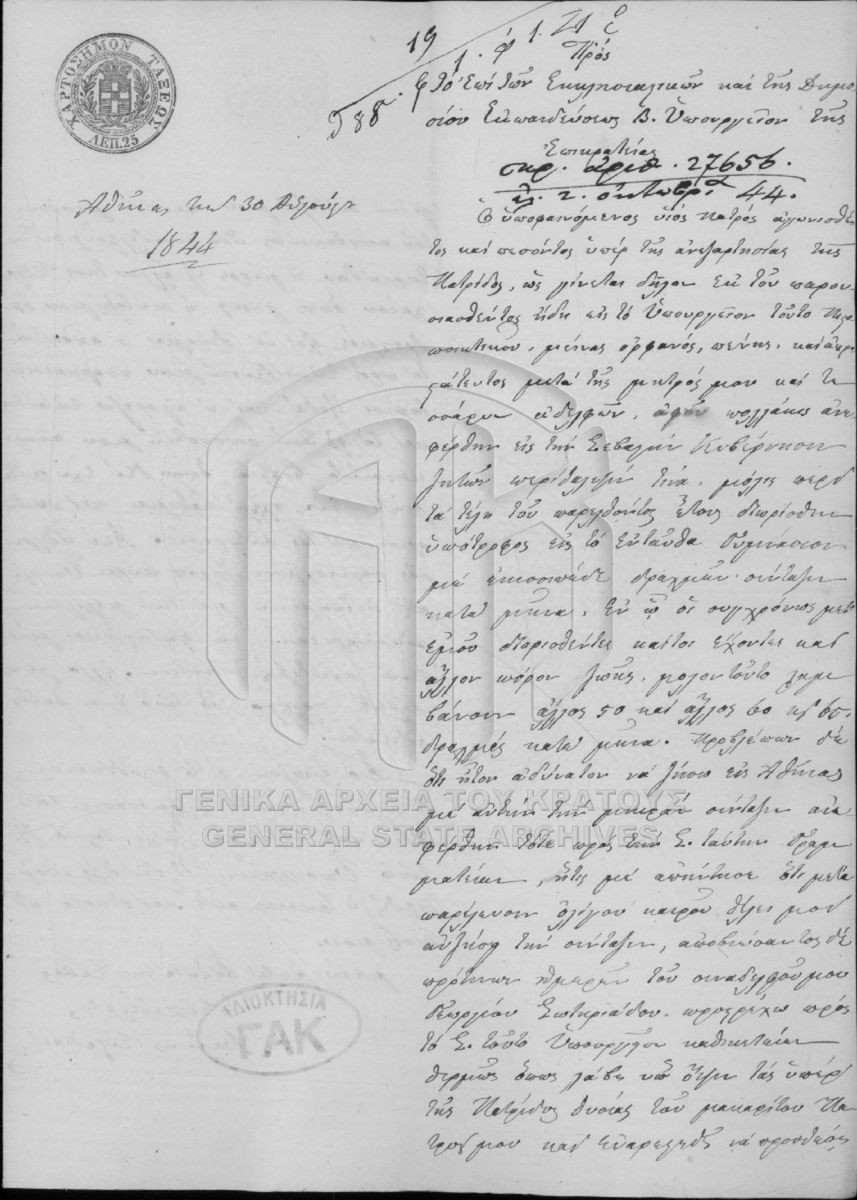 ΧΑΡΤΟΣΗΜΟΝ ΤΑΞΕΩΣ
ΛΕΠ.25
19
1.
Πρὸς
τὸ ἐπὶ τῶν Ἐκκλησιαστικῶν καὶ τῆς Δημο-
σίου Ἐκπαιδεύσεως Β. Ὑπουργεῖον τῆς
Ἐπικρατείας
πρ. ἀριθ. 27656.
2. ὀκτωβρ. 44.
Ἀθῆναι τὴν 30
1844
Ὁ ὑποφαινόμενος υἱὸς πατρὸς ἀγωνισθέν-
τος καὶ πεσόντος ὑπὲρ τῆς ἀνεξαρτησίας τῆς
Πατρίδος, ὡς γίνεται δῆλον ἐκ τοῦ παρου-
σιασθέντος ἤδη εἰς τὸ Ὑπουργεῖον τοῦτο Πιστο-
ποιητικοῦ, μείνας ὀρφανὸς, πένης, καὶ ἀπρο-
στάτευτος μετὰ τῆς μητρός μου καὶ τε-
σσάρων ἀδελφῶν, ἀφοῦ πολλάκις ἀνε-
φέρθην εἰς τὴν Σεβαστὴν Κυβέρνησιν
ζητῶν περίθαλψίν τινα, μόλις περὶ
τὰ τέλη τοῦ παρελθόντος ἔτους διωρίσθην
ὑπότροφος εἰς τὸ ἐνταῦθα Γυμνάσιον
μὲ δραχμῶν σύνταξιν
κατὰ μῆνα. Ἐν ᾧ οἱ συγχρόνως μετ'
ἐμοῦ διορισθέντες καίτοι ἔχοντες καὶ
ἄλλον πόρον ζωῆς, μολοντοῦτο λαμ-
βάνουν ἄλλος 50 καὶ ἄλλος 60 κ 65.
δραχμὰς κατὰ μῆνα. Προβλέπων δὲ
ὅτι ἦτον ἀδύνατον νὰ ζήσω εἰς Ἀθήνας
μὲ αὐτὴν τὴν μικρὰν σύνταξιν ἀνε-
φέρθην τότε πρὸς τὴν Σ. ταύτην Γραμ-
ματείαν, ἥτις μὲ ἀπήντησε ὅτι μετὰ
παρέλευσιν ὀλίγου καιροῦ θέλει μοῦ
αὐξήσῃ τὴν σύνταξιν, ἀποβιώσαντος δὲ
πρό τινων ἡμερῶν τοῦ συναδέλφου μου
Γεωργίου Σωτηριάδου, προστρέχω πρὸς
τὸ Σ. τοῦτο Ὑπουργεῖον καθικετεύων
θερμῶς ὅπως λάβῃ ὑπ' ὄψιν τὰς ὑπὲρ
τῆς Πατρίδος θυσίας τοῦ μακαρίτου Πα-
τρός μου καὶ εὐαρεστηθῇ νὰ προσθέσῃ
ΓΕΝΙΚΑ ΑΡΧΕΙΑ ΤΟΥ ΚΡΑΤΟΥΣ
GENERAL STATE ARCHIVES
ΙΔΙΟΚΤΗΣΙΑ
ΓΑΚ